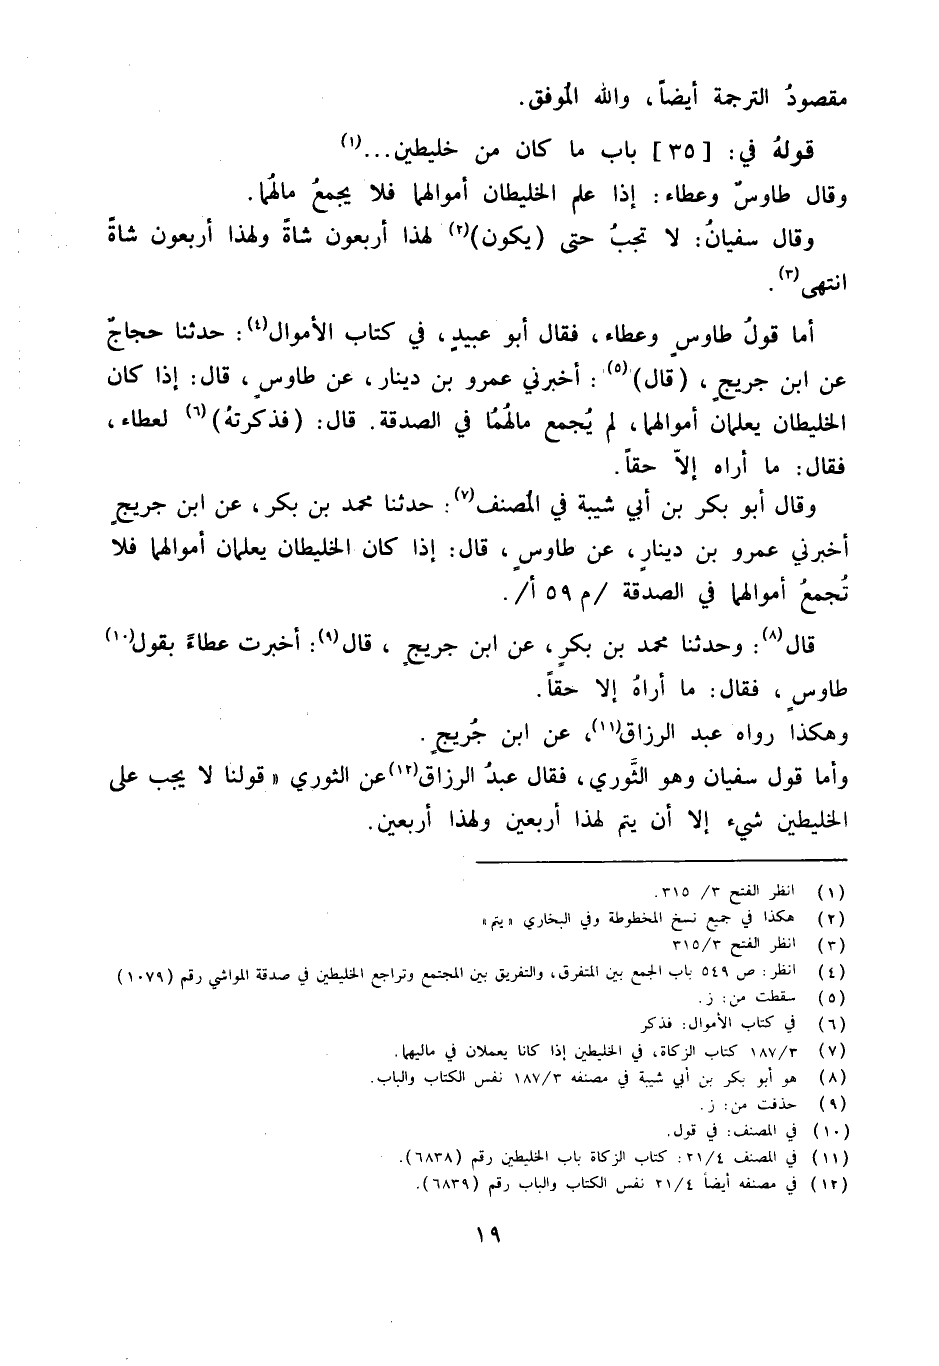 مقصودُ الترجمة أيضاً، والله الموفق.
قولهُ في: [٣٥] باب ما كان من خليطين...(١)
وقال طاوسٌ وعطاء: إذا علم الخليطان أموالهما فلا يجمعُ مالهُما.
وقال سفيانُ: لا تجبُ حتى (يكون)(٢) لهذا أربعون شاةً ولهذا أربعون شاةً
انتهى(٣).
أما قولُ طاوسٍ وعطاء، فقال أبو عبيدٍ، في كتاب الأموال(٤): حدثنا حجاجٌ
عن ابن جريجٍ، (قال)(٥): أخبرني عمرو بن دينار، عن طاوسٍ، قال: إذا كان
الخليطان يعلمان أموالهما، لم يُجمع مالهُمُا في الصدقة. قال: (فذكرتهُ)(٦) لعطاء،
فقال: ما أراه إلاّ حقاً.
وقال أبو بكر بن أبي شيبة في المُصنف(٧): حدثنا محمد بن بكر، عن ابن جريجٍ
أخبرني عمرو بن دينارٍ، عن طاوسٍ، قال: إذا كان الخليطان يعلمان أموالهما فلا
تُجمعُ أموالهما في الصدقة /م ٥٩ أ/.
قال(٨): وحدثنا محمد بن بكرٍ، عن ابن جريجٍ، قال(٩): أخبرت عطاءً بقول(١٠)
طاوسٍ، فقال: ما أراهُ إلا حقاً.
وهكذا رواه عبد الرزاق(١١)، عن ابن جُريجٍ.
وأما قول سفيان وهو الثَّوري، فقال عبدُ الرزاق(١٢) عن الثوري « قولنا لا يجب على
الخليطين شيء إلا أن يتم لهذا أربعين ولهذا أربعين.
(١) انظر الفتح ٣/ ٣١٥.
(٢) هكذا في جميع نسخ المخطوطة وفي البخاري «يتم»
(٣) انظر الفتح ٣/٣١٥
(٤) انظر: ص ٥٤٩ باب الجمع بين المتفرق، والتفريق بين المجتمع وتراجع الخليطين في صدقة المواشي رقم (١٠٧٩)
(٥) سقطت من: ز.
(٦) في كتاب الأموال: فذكر
(٧) ٣/١٨٧ كتاب الزكاة، في الخليطين إذا كانا يعملان في ماليهما.
(٨) هو أبو بكر بن أبي شيبة في مصنفه ٣/١٨٧ نفس الكتاب والباب.
(٩) حذفت من: ز.
(١٠) في المصنف: في قول.
(١١) في المصنف ٤/٢١: كتاب الزكاة باب الخليطين رقم (٦٨٣٨).
(١٢) في مصنفه أيضاً ٤/٢١ نفس الكتاب والباب رقم (٦٨٣٩).
١٩